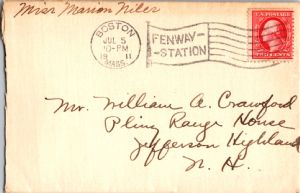 Miss Marion Niles
BOSTON
JUL 5
10-PM
19 11
MASS.
FENWAY-
-STATION
U.S. POSTAGE
TWO CENTS
Mr. William A. Crawford
Pliny Range House
Jefferson Highland
N. H.